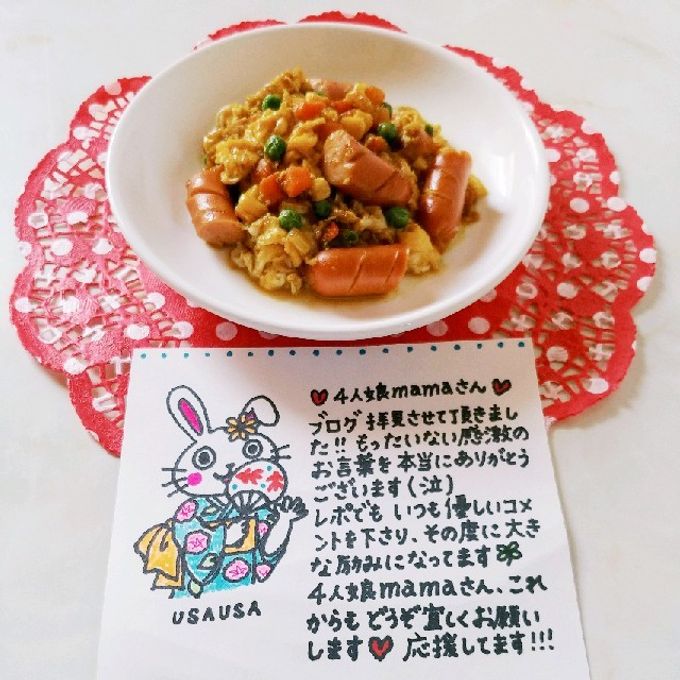 ♥4人娘mamaさん♥
ブログ拝見させて頂きまし
た!!もったいない感激の
お言葉を本当にありがとう
ございます(泣)
レポでもいつも優しいコメ
ントを下さり、その度に大き
な励みになってます🍀
4人娘mamaさん、これ
からもどうぞ宜しくお願い
します♥応援してます!!!
USAUSA